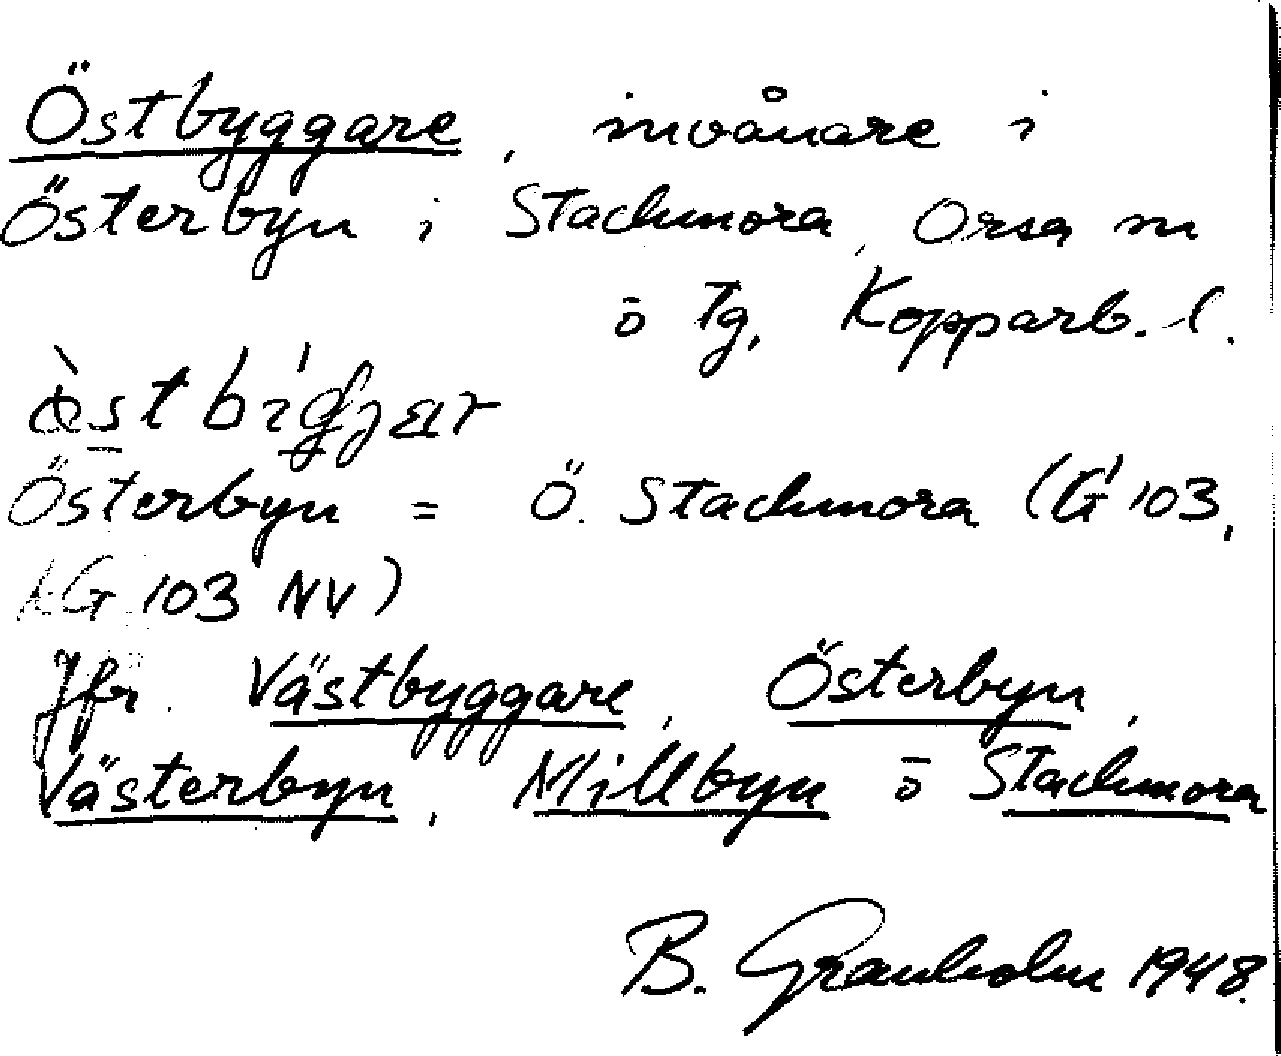 Östbyggare, invånare i
Österbyn i Stackmora, Orsa sn
o Tg, Kopparb. l.
Österbyn = Ö. Stackmora (G 103,
LG 103 NV)
Jfr. Västbyggare, Österbyn,
Västerbyn, Millbyn o Stackmora
B. Granholm 1948.